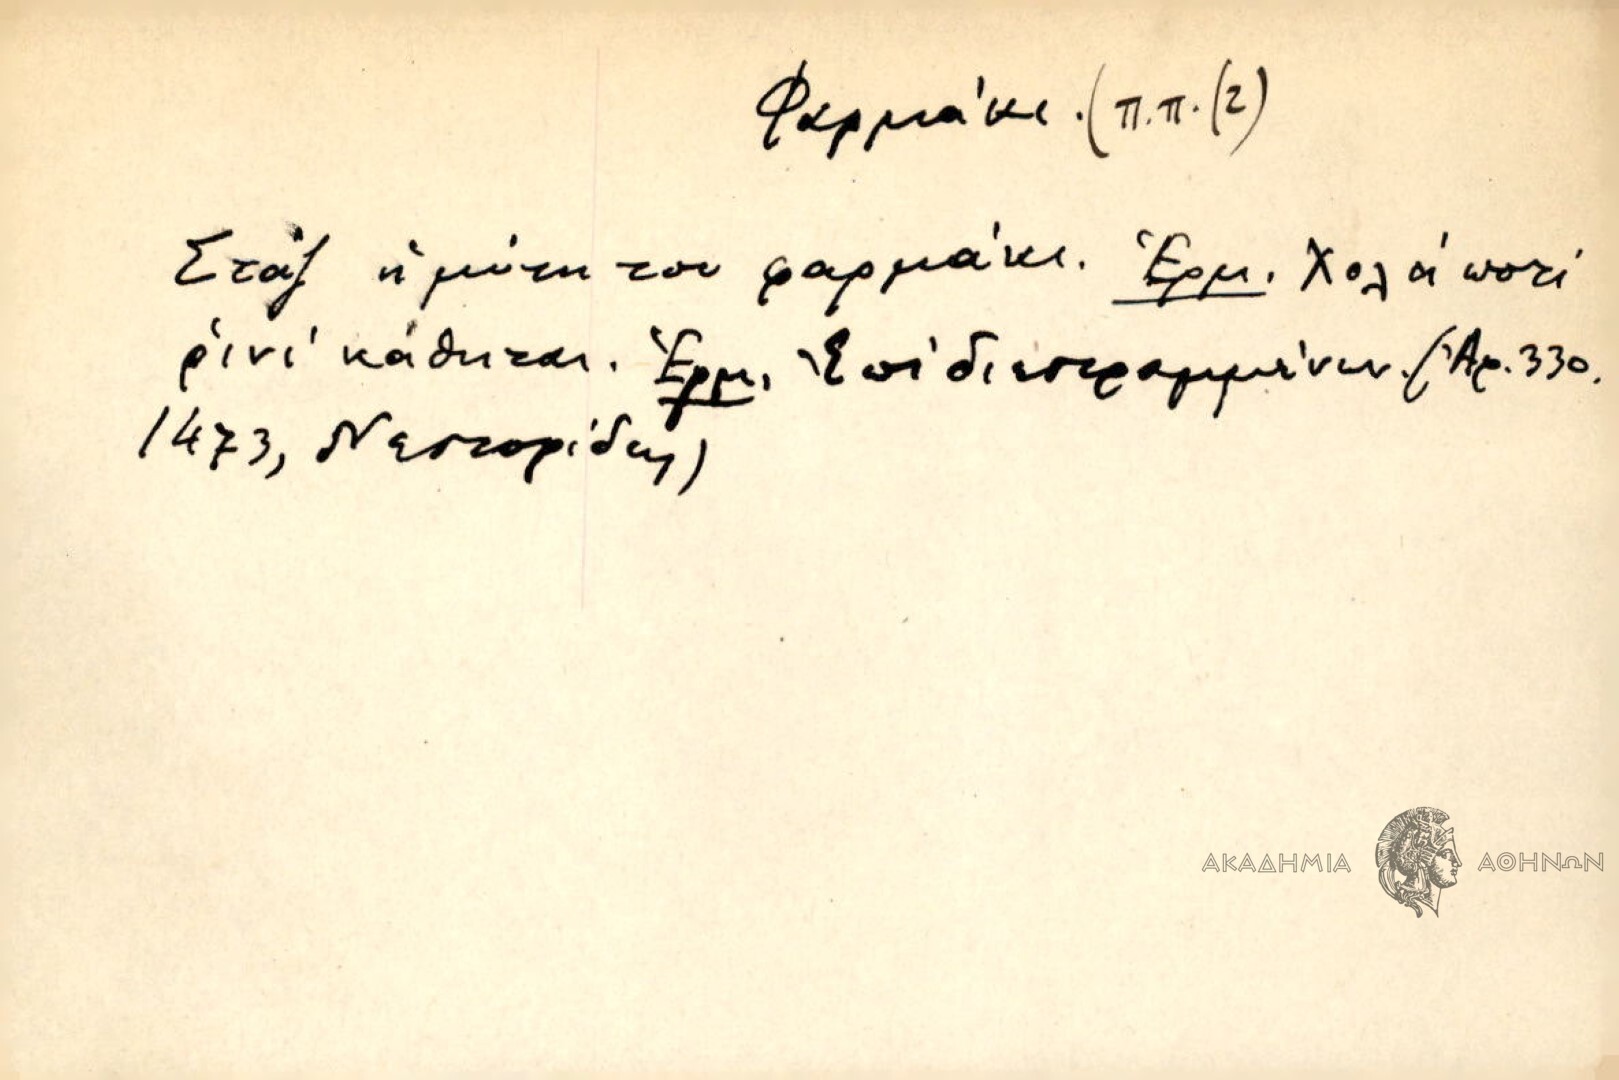 Φαρμάκι. (π.π. (2)
Στάζ ἡ μύτη του φαρμάκι. Ἑρμ. Χολά ποτί
ῥινί κάθηται. Ἑρμ. Ἐπί διεστραμμένων. (Ἀρ. 330.
1473, Νεστορίδης)
ΑΚΑΔΗΜΙΑ ΑΘΗΝΩΝ